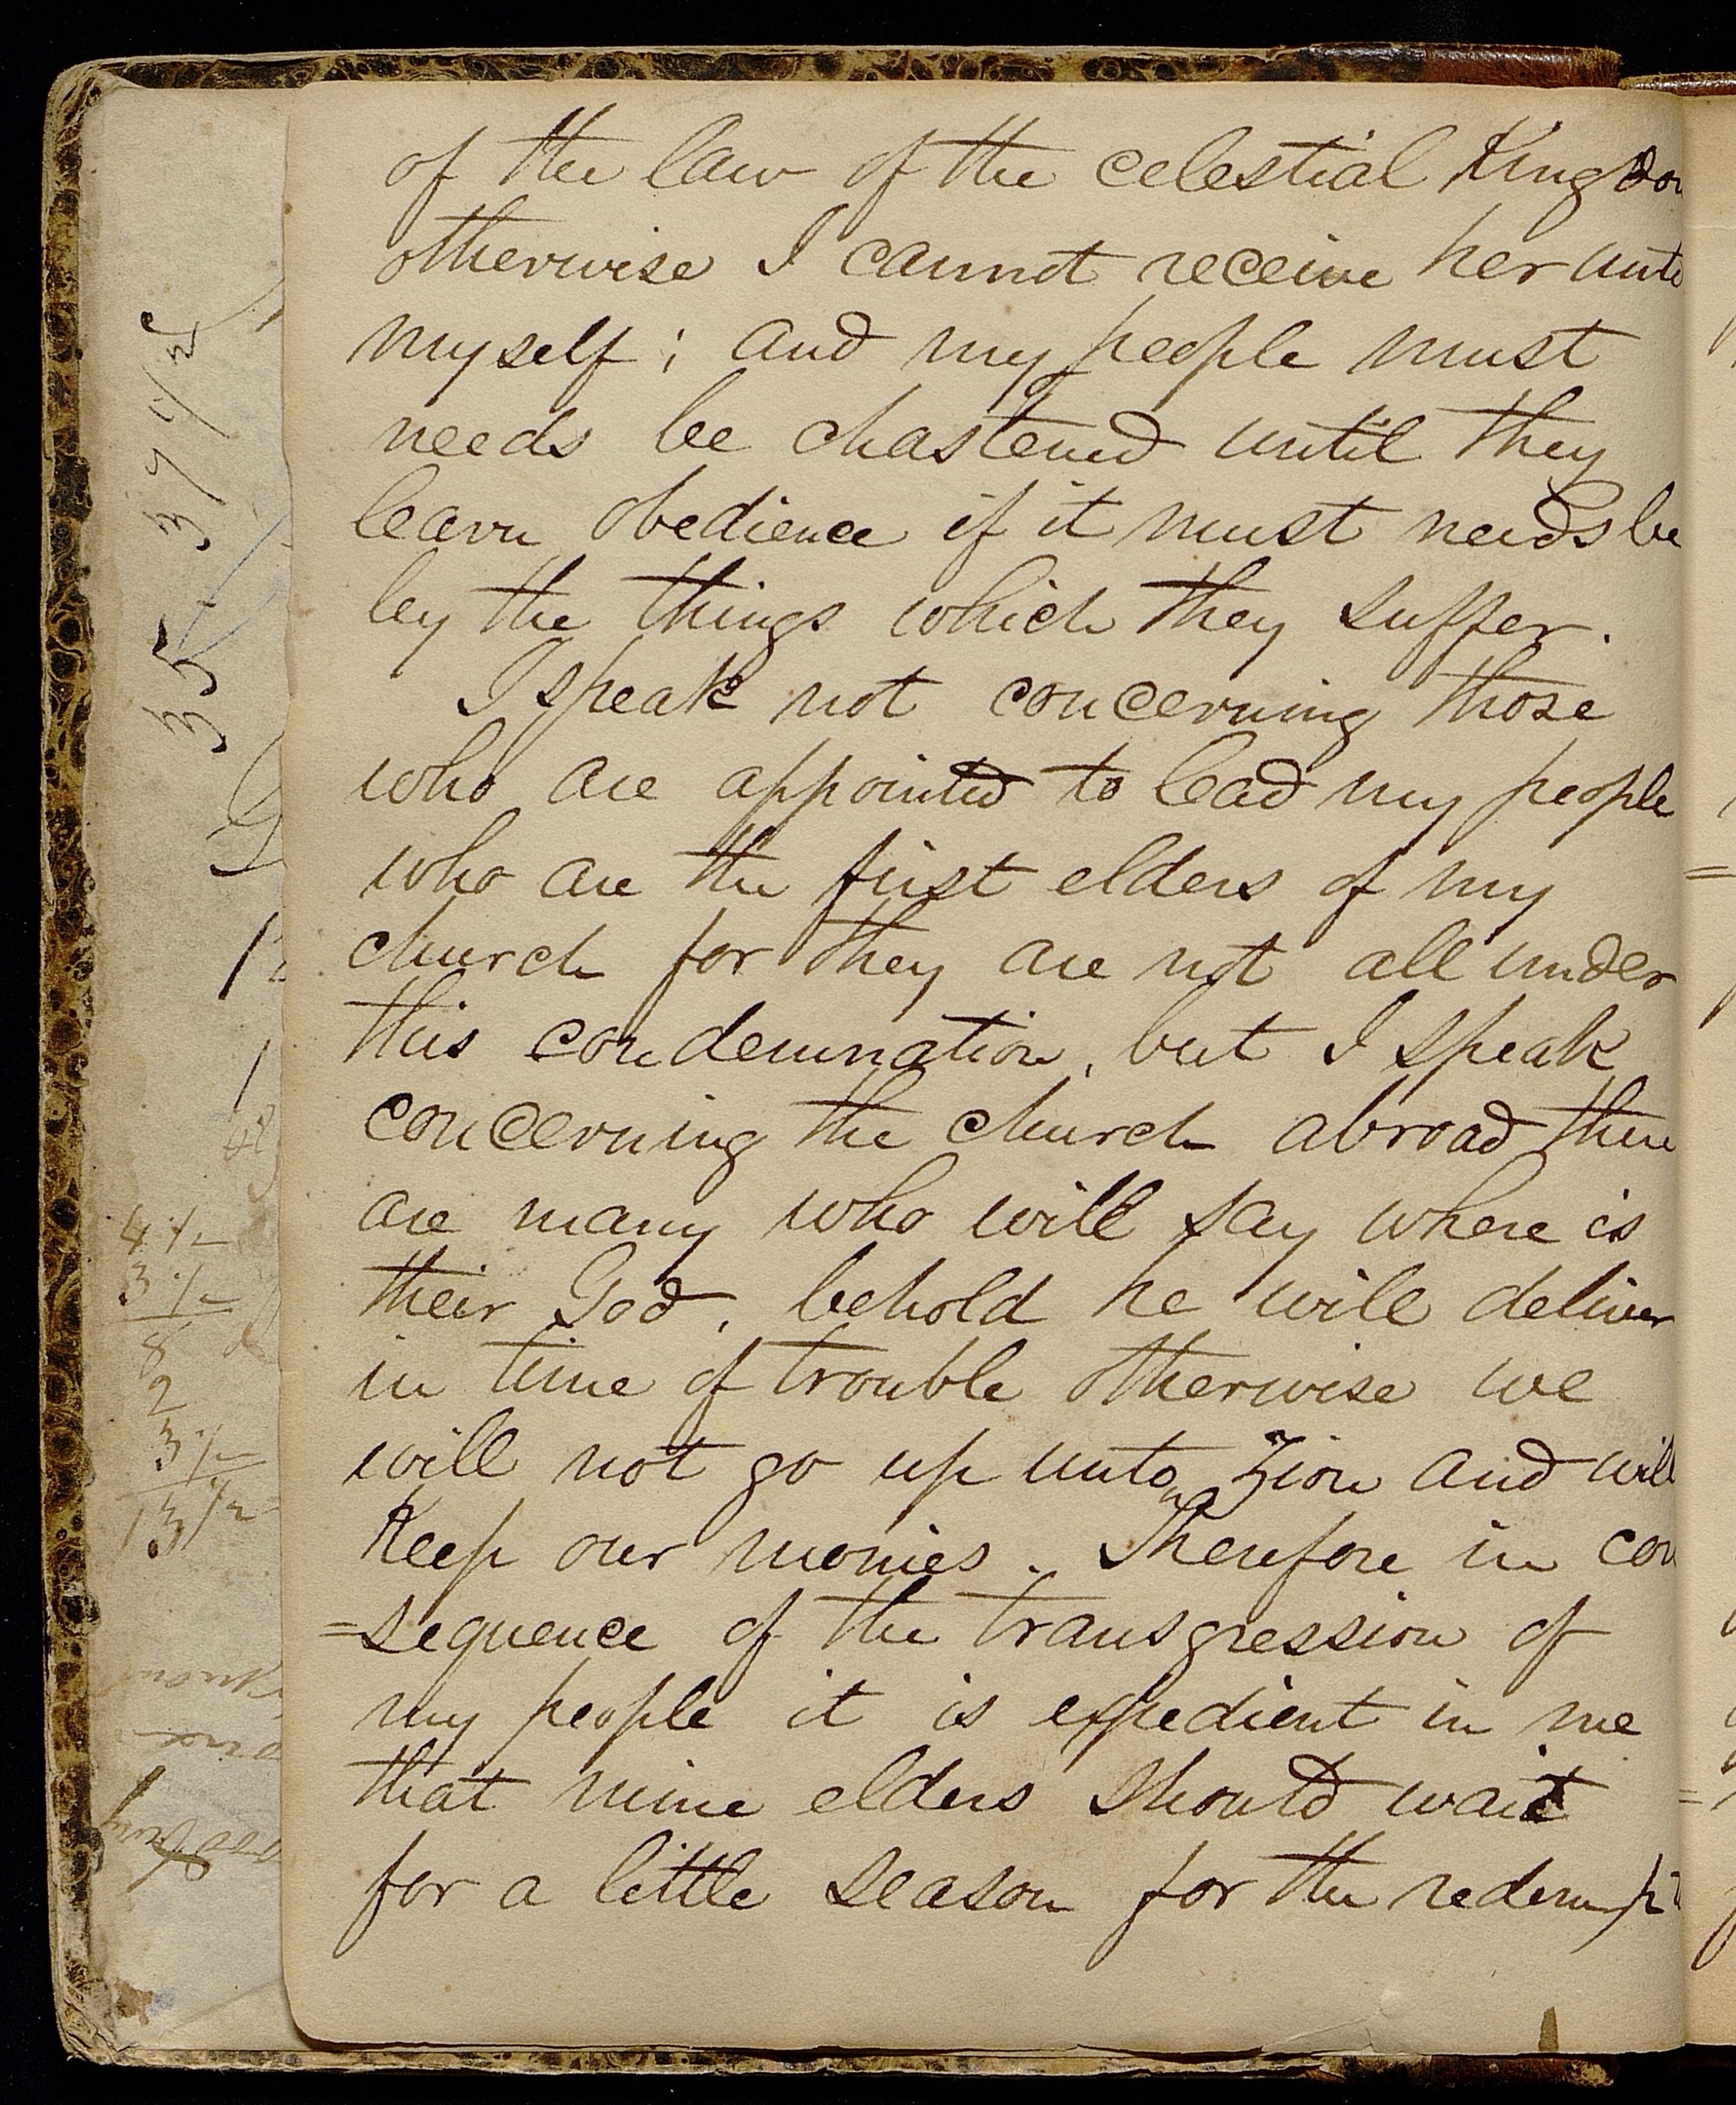 of the law of the celestial Kingdo
otherwise I cannot receive her unto
myself; and my people must
needs be chastened until they
learn obedience if it must needs be
by the things which they suffer.
I speak not concerning those
who are appointed to lead my people
who are the first elders of my
church for they are not all under
this condemnation, but I speak
concerning the church abroad there
are many who will say where is
their God, behold he will deliver
in time of trouble otherwise we
will not go up unto Zion and will
Keep our monies. Therefore in con
=sequence of the transgression of
my people it is expedient in me
that mine elders should wait
for a little season for the redempt
37 1/2
35
4 1/2
3 1/2
8
2
3 1/2
13 1/2